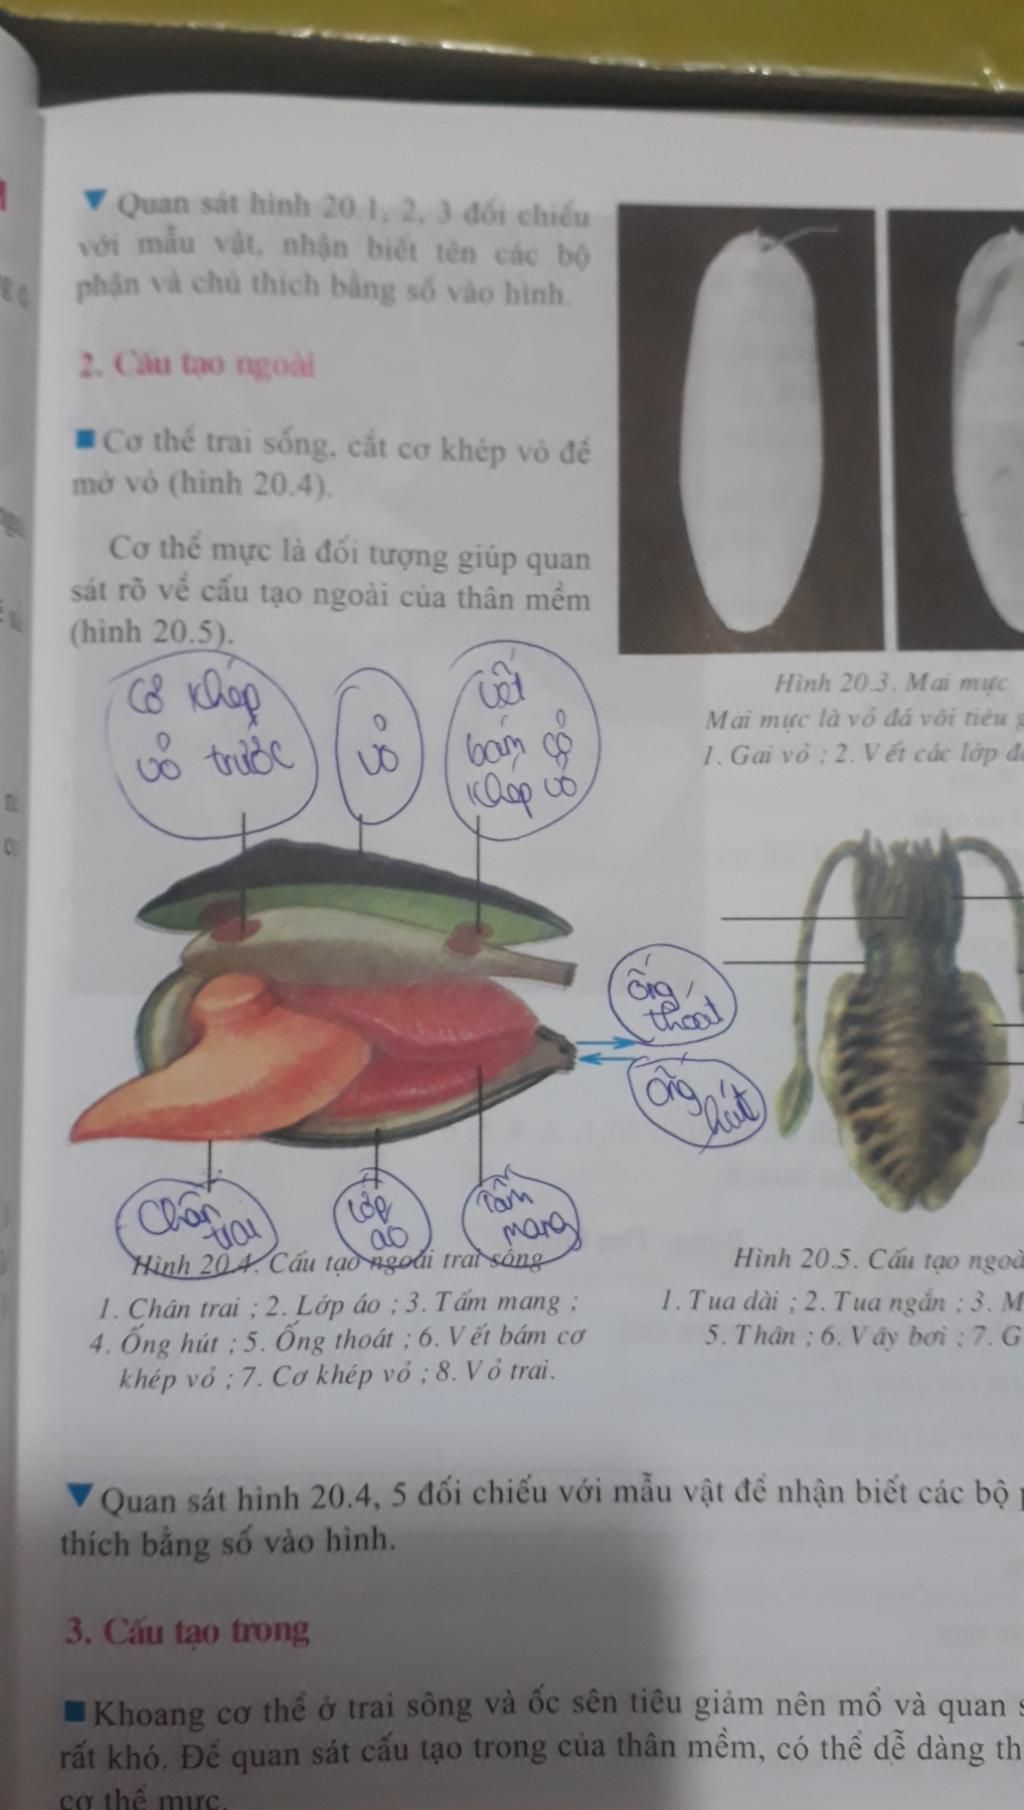 ▼ Quan sát hình 20.1, 2, 3 đối chiếu
với mẫu vật, nhận biết tên các bộ
phận và chú thích bằng số vào hình.
2. Cấu tạo ngoài
■ Cơ thể trai sống, cắt cơ khép vỏ để
mở vỏ (hình 20.4).
Cơ thể mực là đối tượng giúp quan
sát rõ về cấu tạo ngoài của thân mềm
(hình 20.5).
Hình 20.3. Mai mực
Mai mực là vỏ đá vôi tiêu
1. Gai vỏ ; 2. Vết các lớp
Cơ khép
vỏ trước
vỏ
vết
bám cơ
khép vỏ
ống
thoát
ống
hút
Chân
trai
lớp
áo
Tấm
mang
Hình 20.4. Cấu tạo ngoài trai sông
1. Chân trai ; 2. Lớp áo ; 3. Tấm mang ;
4. Ống hút ; 5. Ống thoát ; 6. Vết bám cơ
khép vỏ ; 7. Cơ khép vỏ ; 8. Vỏ trai.
Hình 20.5. Cấu tạo
1. Tua dài ; 2. Tua ngắn ; 3. M
5. Thân ; 6. Vây bơi ; 7. G
▼ Quan sát hình 20.4, 5 đối chiếu với mẫu vật để nhận biết các bộ
thích bằng số vào hình.
3. Cấu tạo trong
■ Khoang cơ thể ở trai sông và ốc sên tiêu giảm nên mổ và quan
rất khó. Để quan sát cấu tạo trong của thân mềm, có thể dễ dàng th
cơ thể mực.